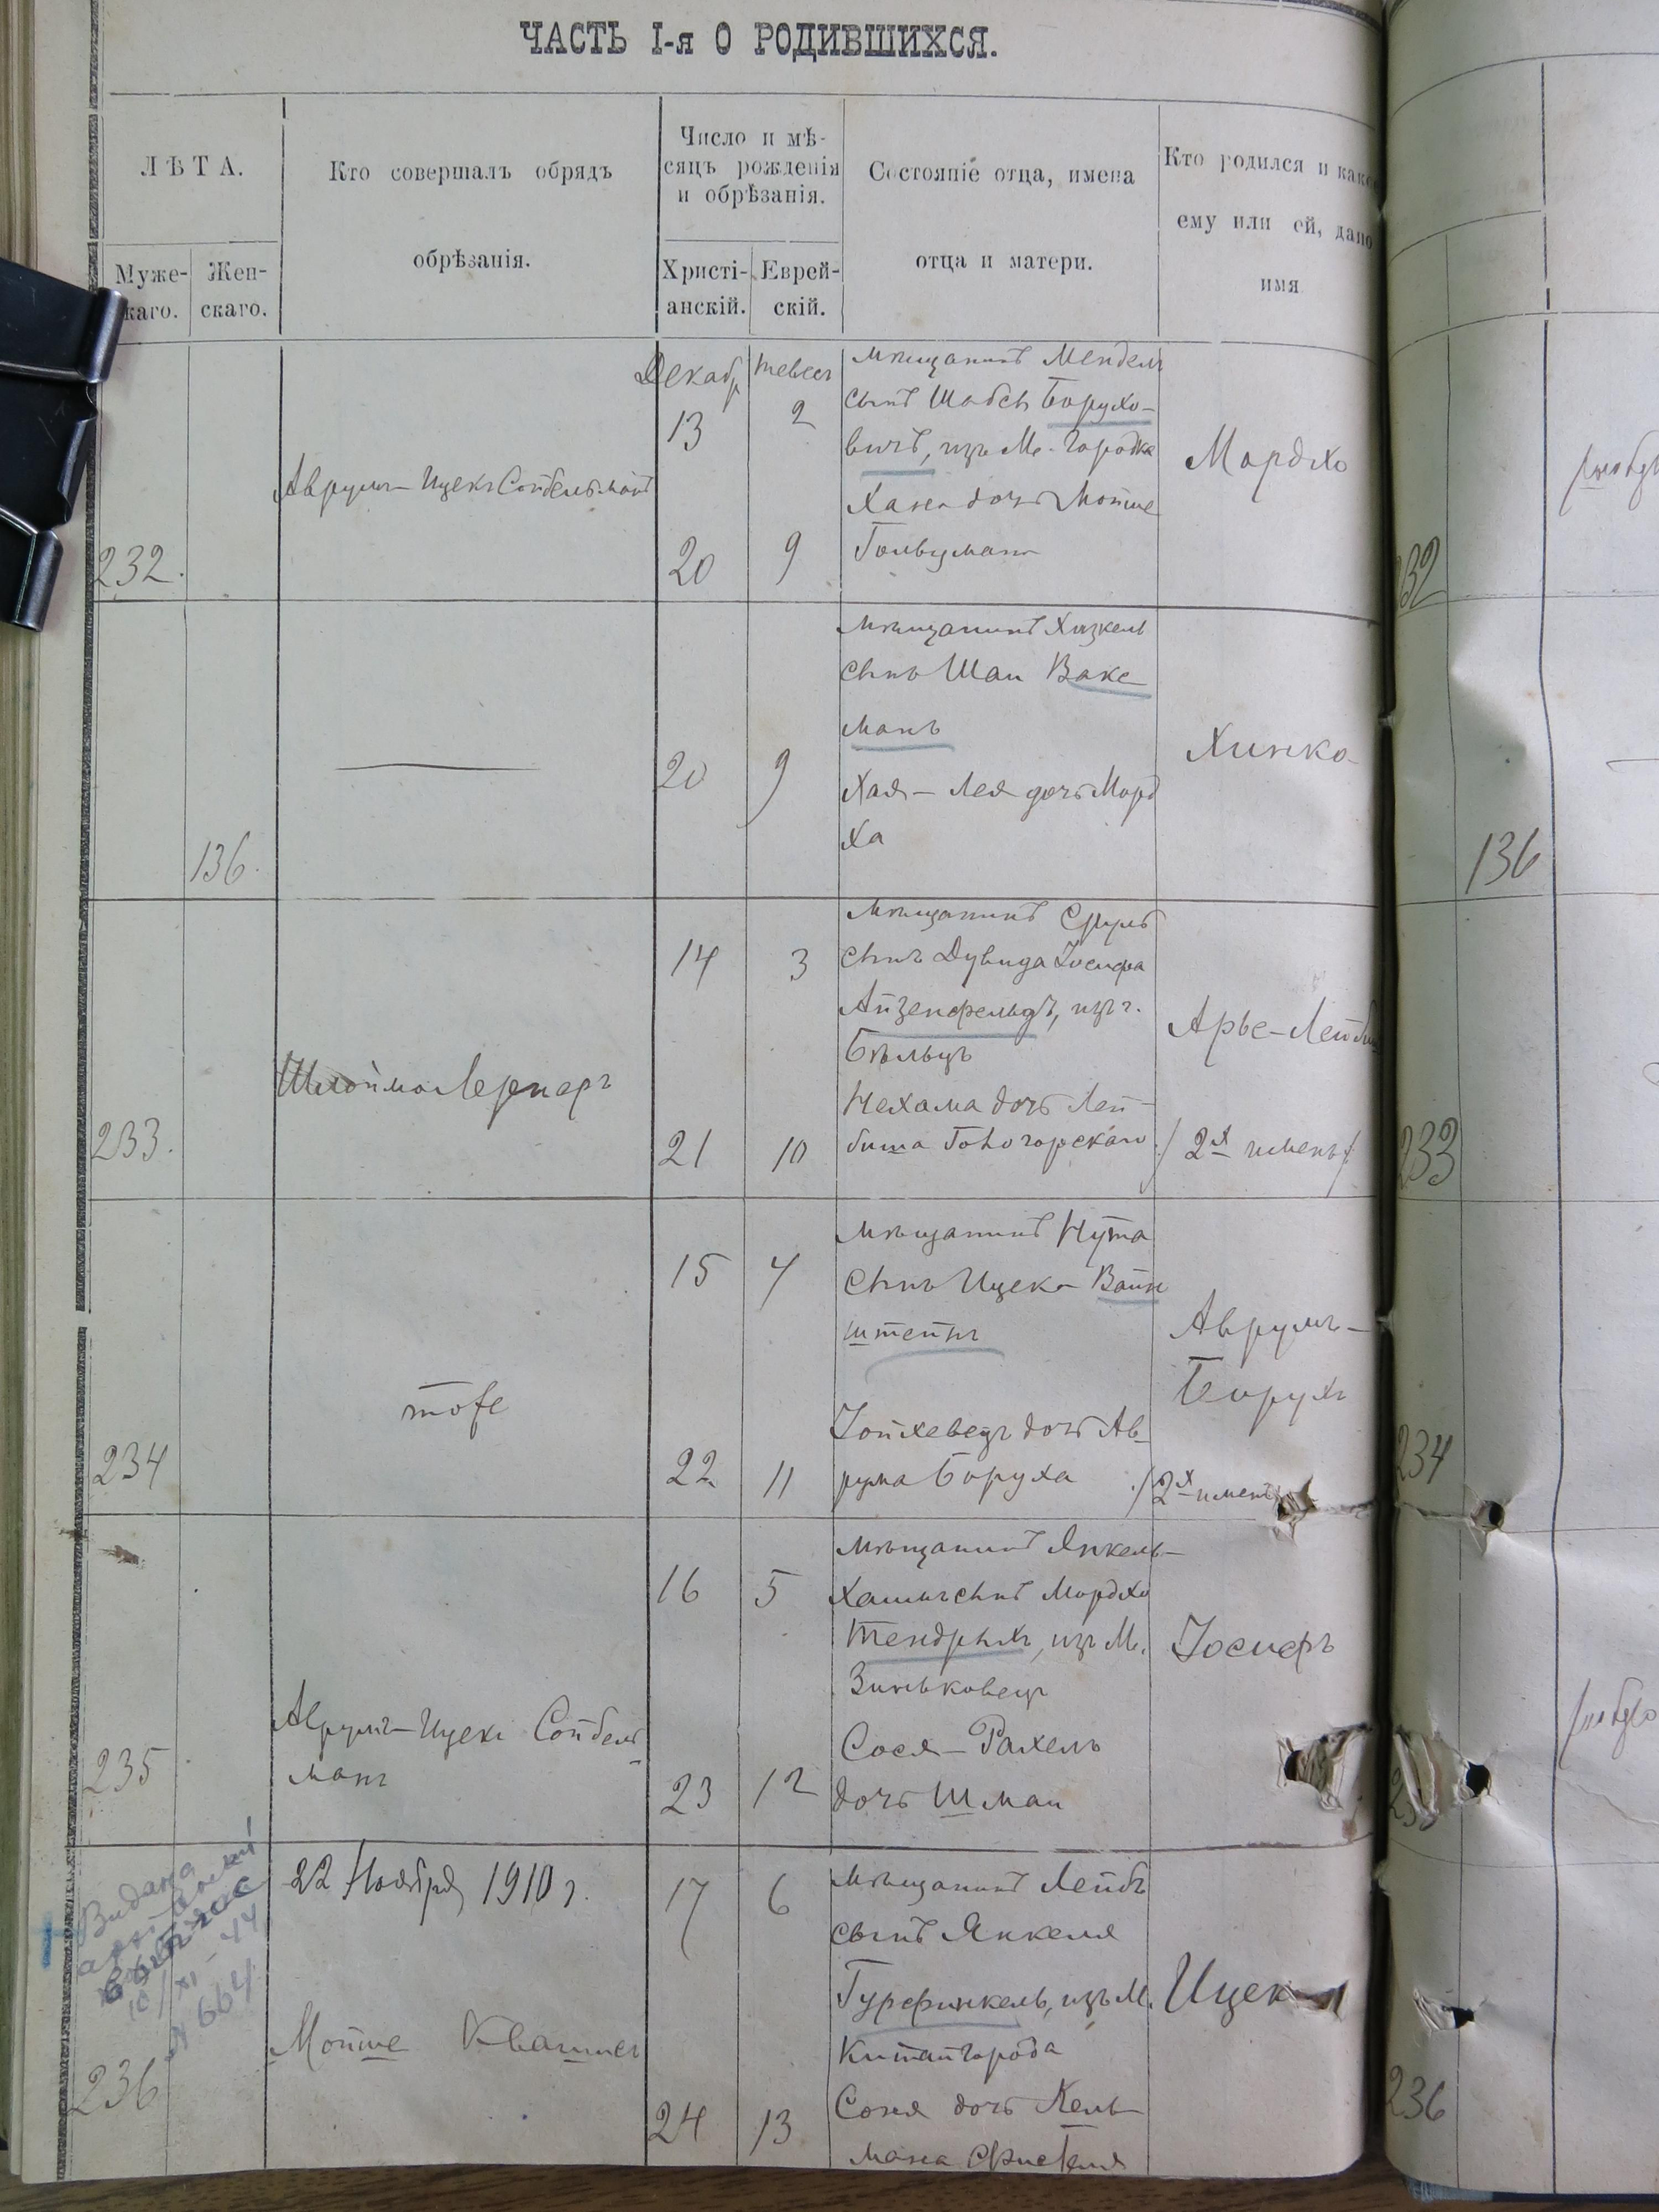 ЧАСТЬ I-я О РОДИВШИХСЯ.
ЛѢТА.
Муже-
скаго.
Жен-
скаго.
Кто совершалъ обрядъ
обрѣзанія.
Число и мѣ-
сяцъ рожденія
и обрѣзанія.
Христі-
анскій.
Еврей-
скій.
Состояніе отца, имена
отца и матери.
Кто родился и какое
ему или ей, дано
имя
232.
Аврумъ-Ицекъ Сойбельманъ
Декабр
13
20
2
9
Мѣщанинъ Мендель
сынъ Шабсы Борухо-
вичъ, изъ М. Городка
Хана дочь Мойше
Гольцмана
Мордхо
232
136.
20
9
Мѣщанинъ Хизкель
сынъ Шаи Вакс
манъ
Хая-Лея дочь Морд
ха
Хинка
136
233.
Шлойма Лернеръ
14
21
3
10
Мѣщанинъ Сруль
сынъ Дувида Іосифа
Айзенфельдъ, изъ г.
Бѣльцъ
Нехама дочь Лей-
биша
Арье-Лейбиш
/2х именъ/
233
234
тоже
15
22
4
11
Мѣщанинъ Нута
сынъ Ицека Вайн
штейнъ
Іойхевецъ дочь Ав-
рума Боруха
Аврумъ-
Борухъ
/2х именъ
234
235
Аврумъ-Ицекъ Сойбель-
манъ
16
23
5
12
Мѣщанинъ Янкель-
Хаимъ сынъ Мордхо
Тендрыхъ, изъ М.
Зиньковецъ
Сося-Рахель
дочь Шмаи
Іосифъ
Видана
664
236
22 Ноября 1910 г.
Мойше
17
24
6
13
Мѣщанинъ Лейбъ
сынъ Янкеля
Гурфинкель, изъ М.
Китайгорода
Соня дочь Кель-
мана
Ицекъ
236